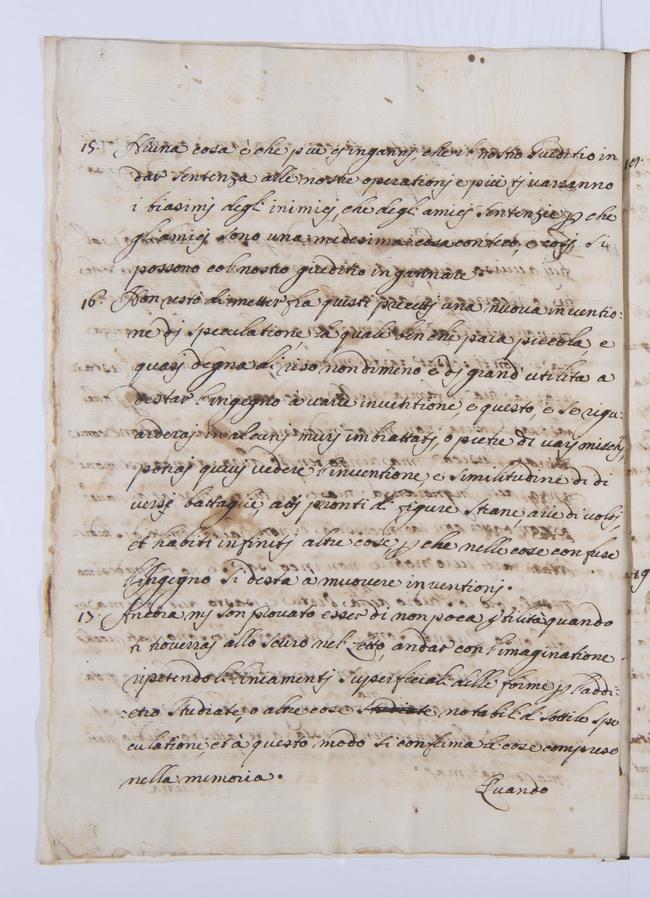 15. Niuna cosa è che più ci inganni, che il nostro Giuditio in
dar sentenza alle nostre operationj e più tj varranno
i biasimj degli inimicj, che degli amicj sentenzie p che
gli amicj sono una medesima cosa con teco, e cosj si
possono col nostro giuditio ingannare.
16. Non restò di metter fra questi precettj una nuova inventio:
ne dj speculatione, la quale ben che paia piccola e
quasj degna di riso, nondimeno è dj grand' utilità a
destar l'ingegno à varie inventione, e questo, e se rigu:
arderaj in alcunj murj imbrattatj, o pietre di varj mistchj,
potraj quivj vedere l'inventione, e similitudine di di
verse battaglie, attj prontj di figure strane, arie di voltj,
et habiti infinitj altre cose, p che nelle cose confuse
l'ingegno si desta a muovere inventionj.
17. Ancora mj son provato esser di non poca utilità quando
ti troverraj allo scuro nel letto, andar con l'imaginatione
ripetendo li liniamentj superficiali delle forme p l'addi:
etro studiate, o altre cose studiate notabili di sottile spe
culatione, et à questo modo si confirma le cose comprese
nella memoria.
Quando